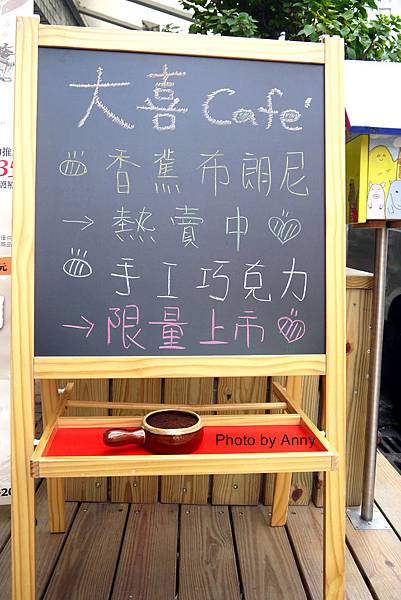 大喜 Café
香蕉布朗尼
→ 熱賣中
手工巧克力
→ 限量上市
Photo by Anny